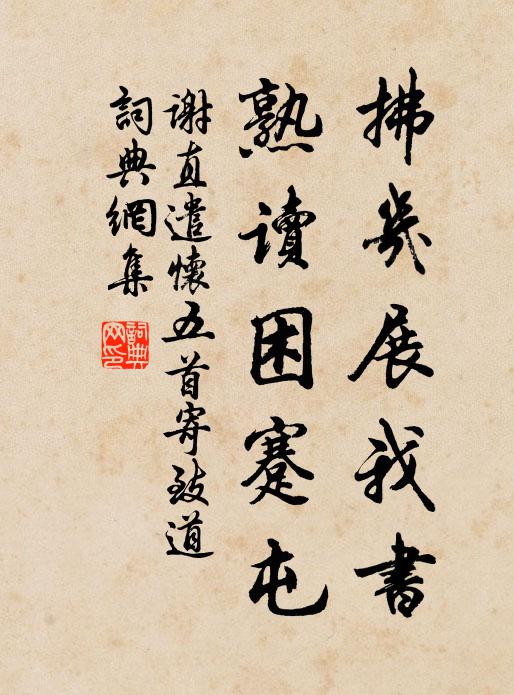 拂幾展我書
熟讀困蹇屯
謝直遣懷五首寄致道
詞典網集
詞典網印